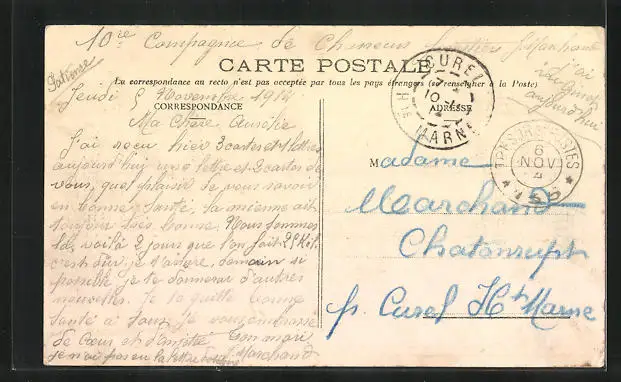 10re Compagnie de Chasseurs forestiers
CARTE POSTALE
La correspondance au recto n'est pas acceptée par tous les pays étrangers (se renseigner à la Poste)
Jeudi 5 Novembre 1914
CORRESPONDANCE
Ma Chère Aurélie
J'ai reçu hier 3 cartes et 1 lettres
aujourd'hui une lettre et 2 cartes de
vous, quel plaisir de vous savoir
en bonne santé, la mienne est
toujours très bonne. Nous sommes
voilà 2 jours que l'on fait 25 Kil.
c'est dur je t'assure, demain si
possible je te donnerai d'autres
nouvelles. Je te quitte bonne
santé à tous je vous embrasse
de cœur et d'amitié ton mari
je n'ai pas eu la lettre Marchand
j'ai
aujourd'hui
CUREL
HTE MARNE
ADRESSE
TRESOR ET POSTES
6
NOV
* 155 *
Madame
Marchand
Chatonrupt
pr Curel Hte Marne